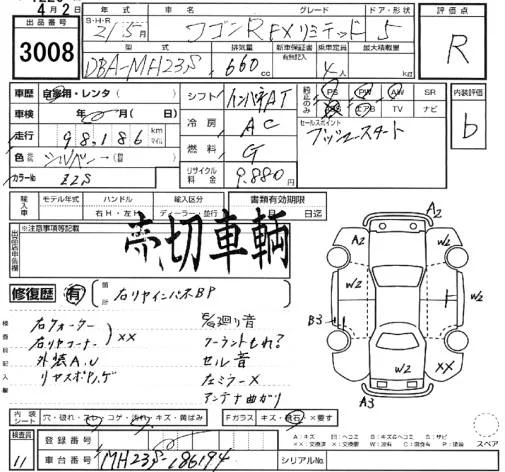 4月2日
出品番号
3008
S・H・R 年式 車名 グレード ドア・形状
21/5月 ワゴンR FXリミテッド 5
型式 排気量 新車保証書 乗車定員 最大積載量
有無記入
DBA-MH23S 660cc 4人 kg
評価点
R
車歴 自家用・レンタ
車検 年 月
走行 98,186 km マイル
色 シルバー
カラーNo Z2S
シフト ハンドルAT
冷房 AC
燃料 G
リサイクル料金 9,880円
純正のみ PS PW AW SR
エアB TV ナビ
セールスポイント
プッシュスタート
内装評価
b
輸入車 モデル年式 ハンドル 輸入区分 書類有効期限
右H・左H ディーラー・並行 月 日迄
出品店申告欄
※注意事項等記載
売切車輌
修復歴 有 箇所 右リヤインパネBP
検査員記入欄
右クォーター
右リヤコーナー ××
外装A.U
セル音
左ミラー×
アンテナ曲がり
A2
A2 W2
W2 W2
B3
W2 W2 XX
A3
内装シート 穴・破れ・スレ・コゲ・汚れ・キズ・黄ばみ
Fガラス キズ・飛石・×要す
検査員 11
登録番号
車台番号 MH23S-186194
シリアルNo.
A:キズ U:ヘコミ B:キズ&ヘコミ S:サビ
××:交換済 ×:要交換 W:波有 C:腐食有 P:塗装
スペア